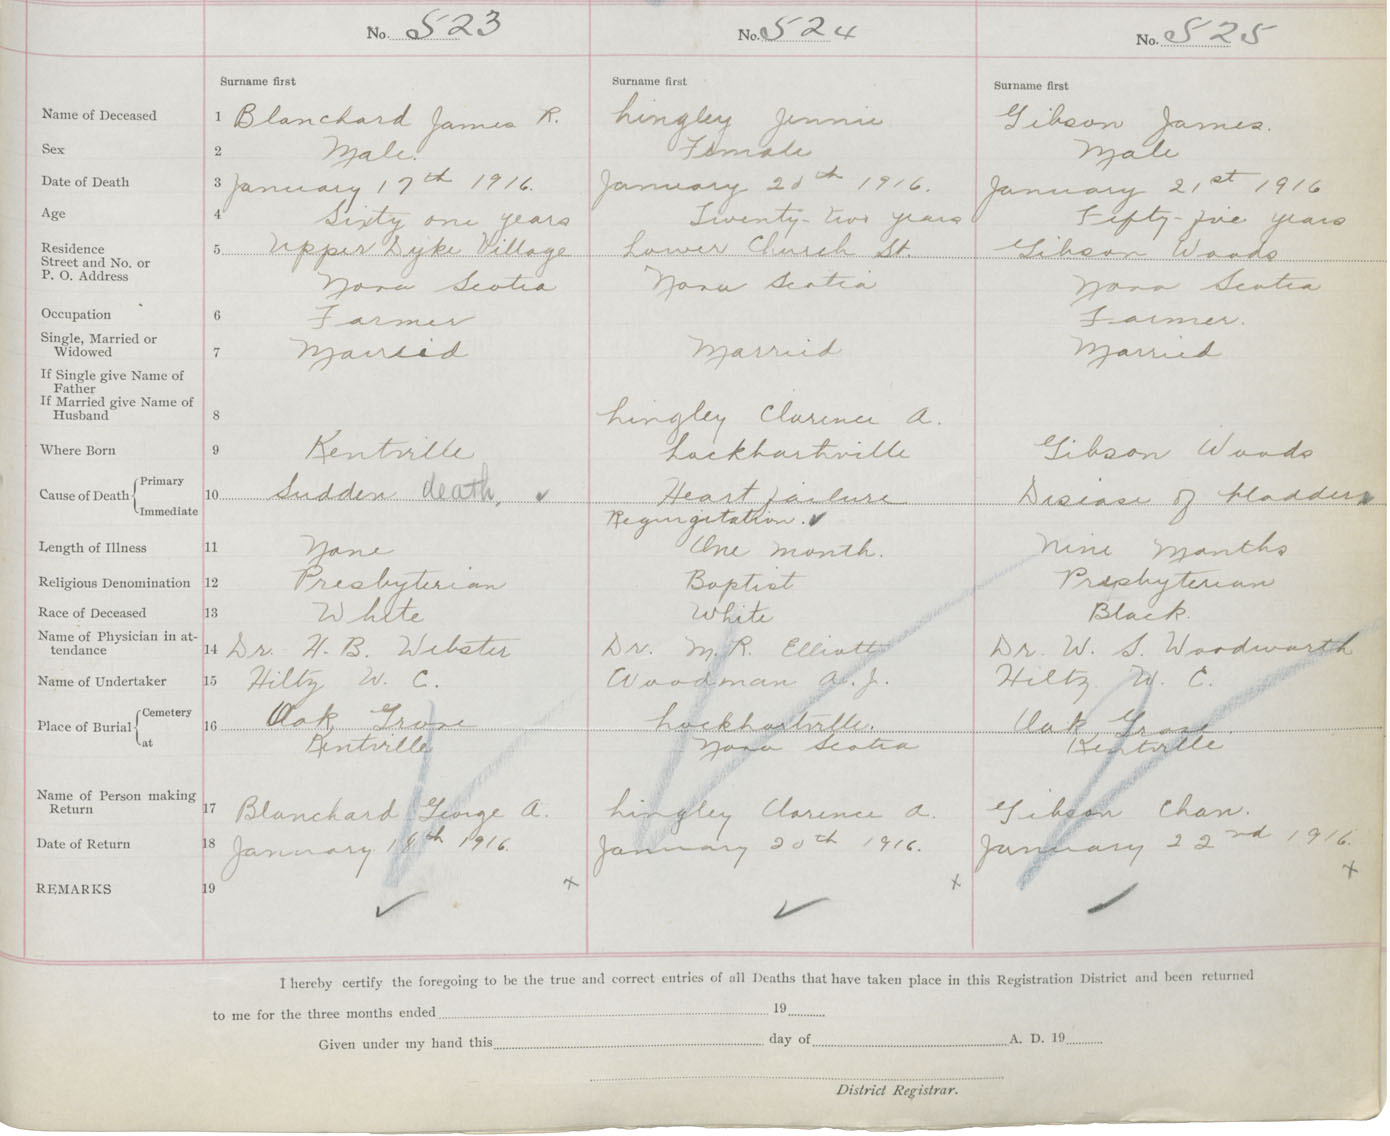 No. 523 No. 524 No. 525
Surname first Surname first Surname first
Name of Deceased 1 Blanchard James R. Lingley Jennie Gibson James.
Sex 2 Male. Female Male
Date of Death 3 January 17th 1916. January 20th 1916. January 21st 1916
Age 4 Sixty one years Twenty-two years Fifty-five years
Residence 5 Upper Dyke Village Lower Church St. Gibson Woods
Street and No. or
P. O. Address Nova Scotia Nova Scotia Nova Scotia
Occupation 6 Farmer Farmer.
Single, Married or
Widowed 7 Married Married Married
If Single give Name of
Father
If Married give Name of
Husband 8 Lingley Clarence A.
Where Born 9 Kentville Lockhartville Gibson Woods
Cause of Death Primary
10 Sudden death. Heart failure Disease of bladder
Immediate Regurgitation.
Length of Illness 11 None One month. Nine Months
Religious Denomination 12 Presbyterian Baptist Presbyterian
Race of Deceased 13 White White Black.
Name of Physician in at-
tendance 14 Dr. H. B. Webster Dr. M. R. Elliott Dr. W. S. Woodworth
Name of Undertaker 15 Hiltz W. C. Woodman A. J. Hiltz W. C.
Place of Burial Cemetery 16 Oak Grove Lockhartville. Oak Grove.
at Kentville Nova Scotia Kentville
Name of Person making
Return 17 Blanchard George A. Lingley Clarence A. Gibson Chan.
Date of Return 18 January 18th 1916. January 20th 1916. January 22nd 1916.
REMARKS 19 x x x
I hereby certify the foregoing to be the true and correct entries of all Deaths that have taken place in this Registration District and been returned
to me for the three months ended 19
Given under my hand this day of A. D. 19
District Registrar.